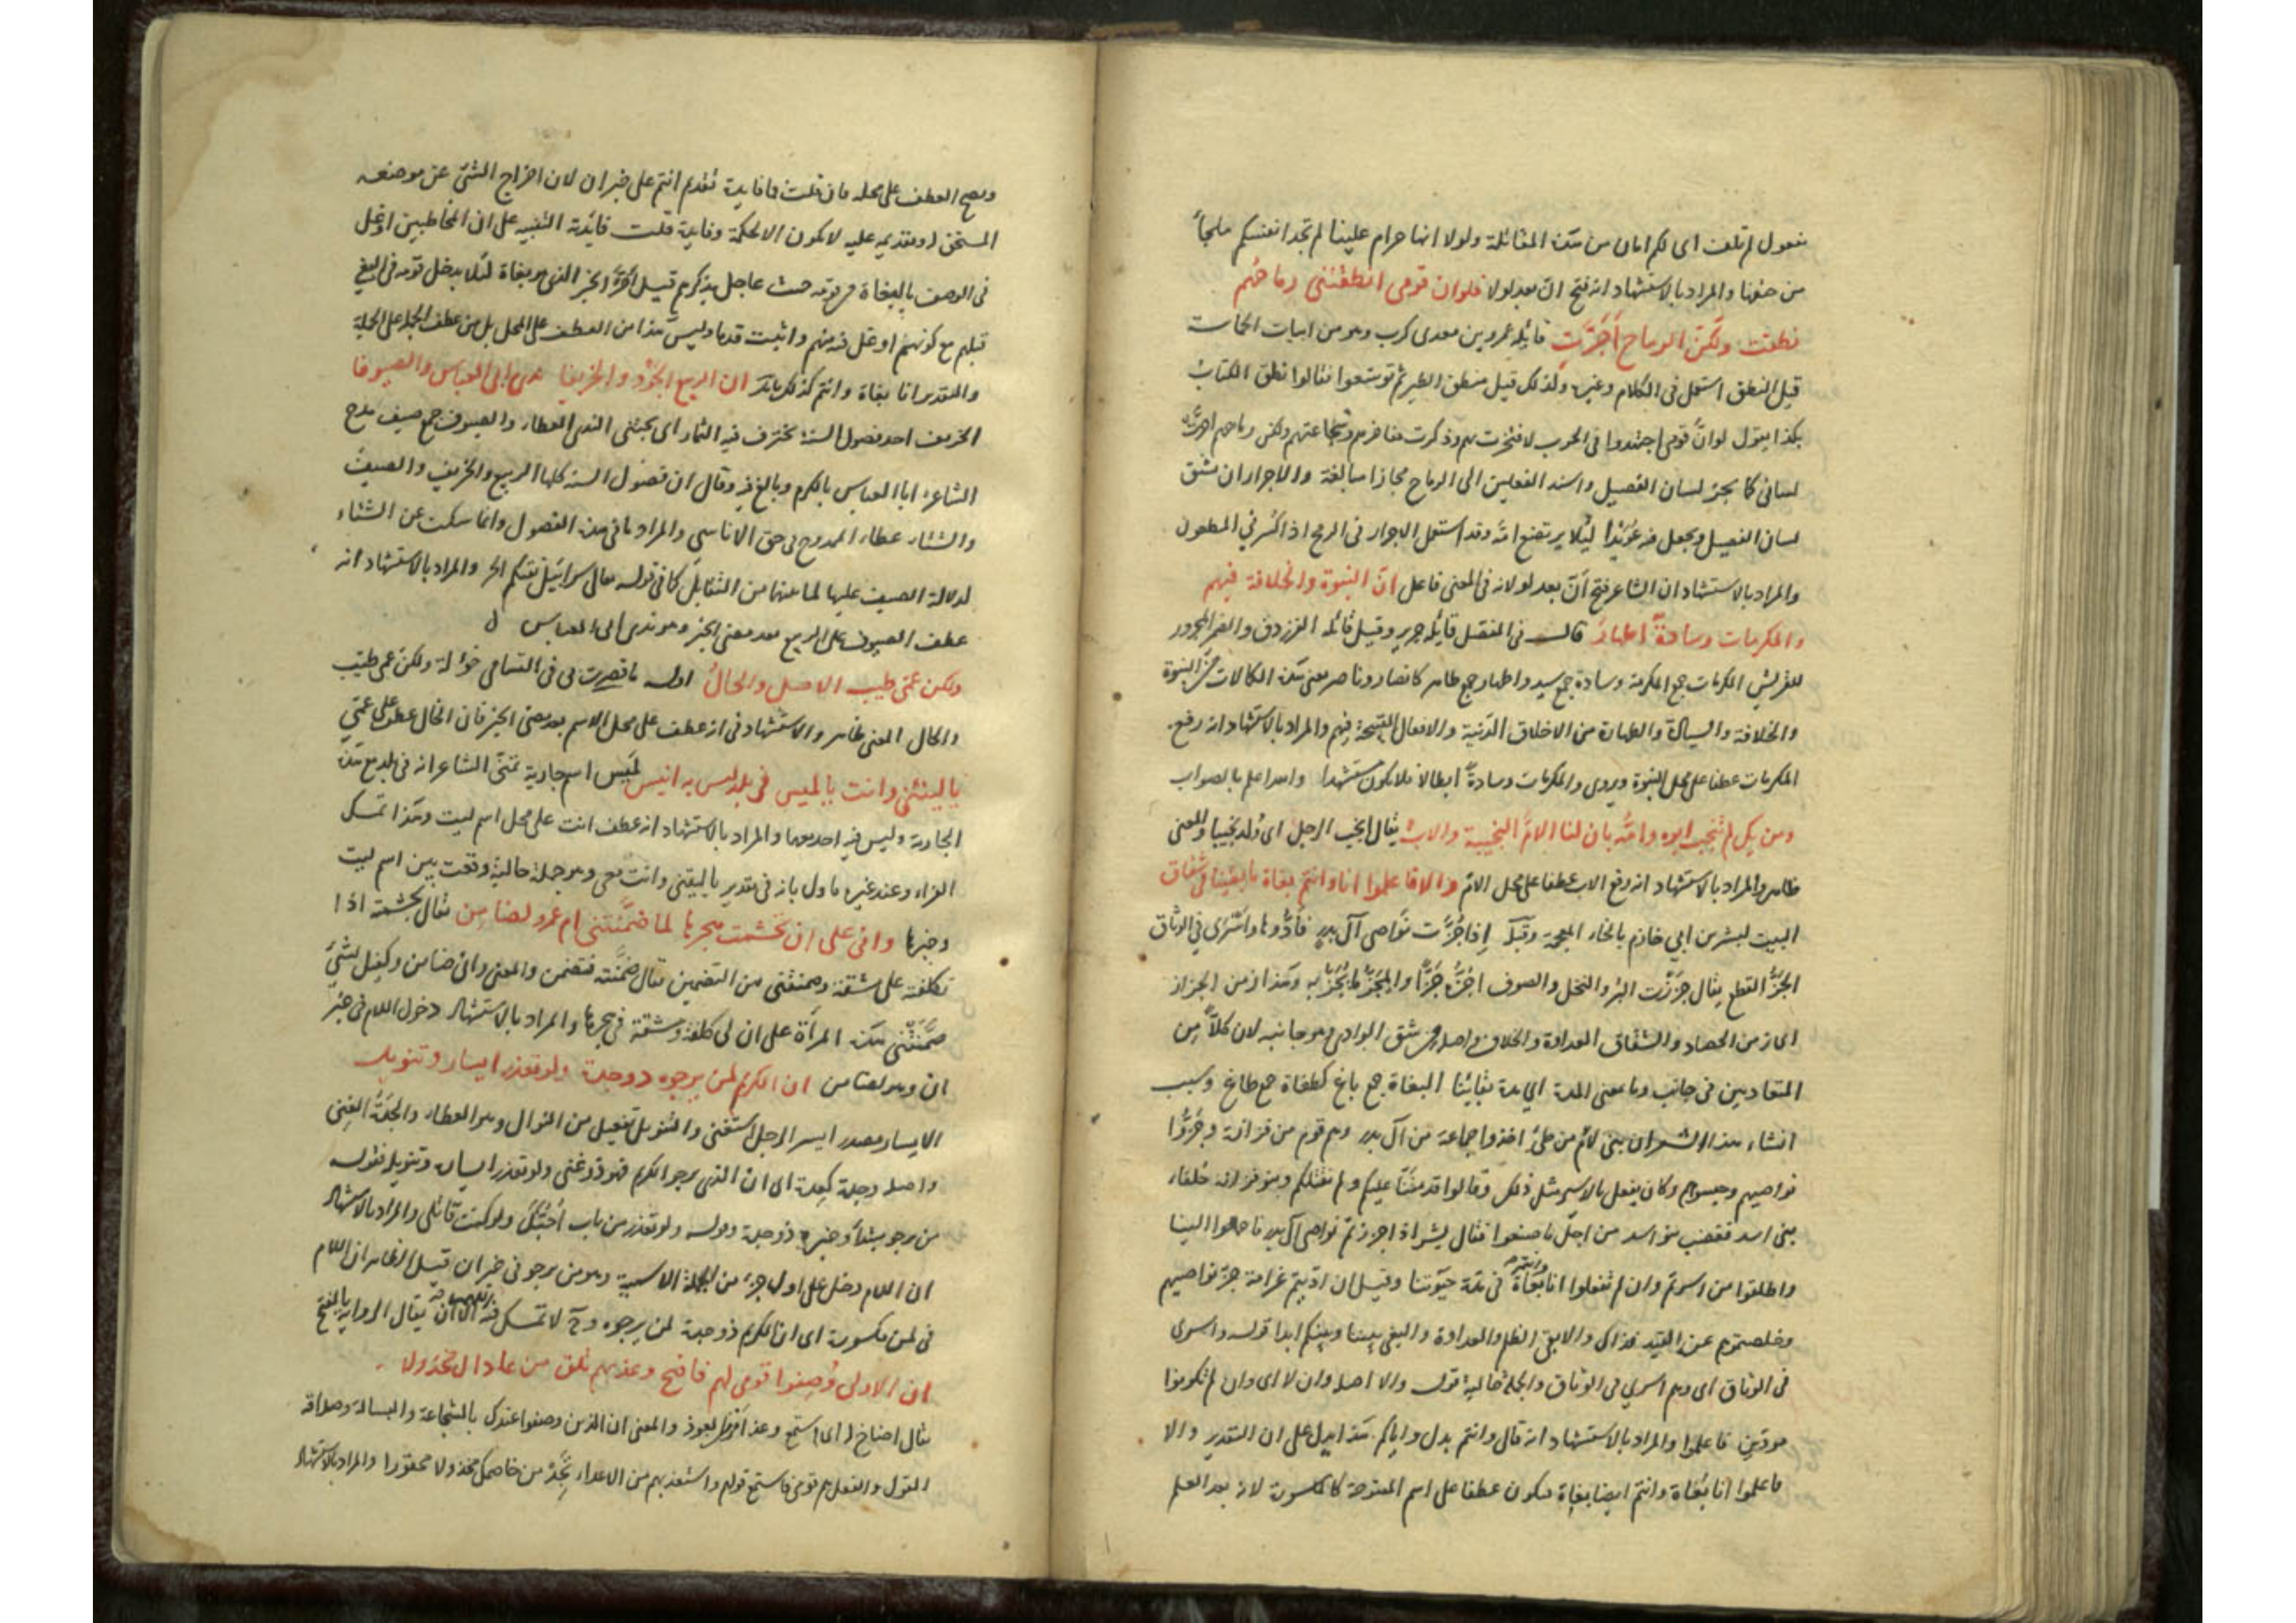 مفعول لم تلف اى لكم امان من هذه المقاتلة ولولا انها حرام علينا لم تجد انفسكم ملجأ
من خوفنا والمراد بالاستشهاد انه فتح ان بعد لولا فلو ان قومى انطقتنى رماحهم
نطقت ولكن الرماح اجرّت قايله عمرو بن معدى كرب وهو من ابيات الحماسة
قيل النطق استعمل فى الكلام وغيره ولذلك قيل منطق الطير ثم توسعوا فقالوا نطق الكتاب
بكذا يقول لو انّ قومى اجتهدوا فى الحرب لافتخرت بهم وذكرت مفاخرهم وشجاعتهم ولكن رماحهم اجرّت
لسانى كما يجرّ لسان الفصيل واسند الفعلين الى الرماح مجازا مبالغة والاجرار ان يشق
لسان الفصيل ويجعل فيه عويد لئلا يرتضع امه وقد استعمل الاجرار فى الرمح اذا كسر فى المطعون
والمراد بالاستشهاد ان الشاعر فتح أنّ بعد لو لانه فى المعنى فاعل انّ النبوة والخلافة فيهم
والمكرمات وسادةٌ اطهارُ قال فى المفصل قايله جرير وقيل قائله الفرزدق والضمير المجرور
للقريش المكرمات جمع المكرمة وسادة جمع سيد واطهار جمع طاهر كانصار وناصر معنى هذه الكمالات من النبوة
والخلافة والسيادة والطهارة من الاخلاق الدنية والافعال القبيحة فيهم والمراد بالاستشهاد انه رفع
المكرمات عطفا على محل النبوة ويروى والمكرمات وسادة ابطالا فلا يكون مستشهدا والله اعلم بالصواب
ومن يك لم ينجب ابوه وامّه فان لنا الامّ النجيبة والاب يقال انجب الرجل اى ولد نجيبا والمعنى
ظاهر والمراد بالاستشهاد انه رفع الاب عطفا على محل الامّ والا فاعلموا انا وانتم بغاة ما بقينا فى شقاق
البيت لبشر بن ابي خازم بالخاء المعجمة وقبله اذا جُزّت نواصى آل بدر فادّوها واسرى فى الوثاق
الجزّ القطع يقال جززت البر والنخل والصوف اجزّه جزّا والمجزّ ما يجزّ به وهذا زمن الجزاز
اى زمن الحصاد والشقاق العداوة والخلاف واصله من شق الوادى وهو جانبه لان كلاّ من
المتعاديين فى جانب وما معنى المدة اي مدة بقائنا البغاة جمع باغ كطغاة جمع طاغ وسبب
انشاء هذا الشعر ان بنى لام من طئ اخذوا جماعة من آل بدر وهم قوم من فزارة وجزّوا
نواصيهم وحبسوهم وكان يفعل بالاسير مثل ذلك وقالوا قد مننّا عليكم ولم نقتلكم وبنو فزارة خلفاء
بنى اسد فغضب بنو اسد من اجل ما صنعوا فقال بشر اذ اجززتم نواصى آل بدر فاحملوا الينا
واطلقوا من اسرتم وان لم تفعلوا انا وانتم بغاة فى مدة حيوتنا وقيل ان ادّيتم غرامة جزّ نواصيهم
وخلصتموهم عن القيد فذاك والا بقى الظلم والعداوة والبغى بيننا وبينكم ابدا قوله واسرى
فى الوثاق اى وهم اسرى فى الوثاق والجملة حالية قوله والا اصله وان لا اى وان لم تكونوا
موقنين فاعلموا والمراد بالاستشهاد انه قال وانتم بدل واياكم هذا يدل على ان التقدير والا
فاعلموا انا بغاة وانتم ايضا بغاة فيكون عطفا على اسم المفتوحة كالمكسورة لانه بعد العلم
ويصح العطف على محله فان قلت ما فايدة تقديم انتم على خبر ان لان اخراج الشئ عن موضعه
المستحق له وتقديمه عليه لا يكون الا لحكمة وفايدة قلت فائدته التنبيه على ان المخاطبين اوغل
فى الوصف بالبغاة من قومه حيث عاجل بذكرهم قبل الخبر الذى هو بغاة لئلا يدخل قومه فى البغى
قبلهم مع كونهم اوغل فيه منهم واثبت قدما وليس هذا من العطف على المحل بل من عطف الجملة على الجملة
والتقدير انا بغاة وانتم كذلك ان الربيع الجود والخريفا يدا ابى العباس والصيوفا
الخريف احد فصول السنة تخترف فيه الثمار اى تجتنى الندى العطاء والصيوف جمع صيف مدح
الشاعر ابا العباس بالكرم وبالغ فيه وقال ان فصول السنة كلها الربيع والخريف والصيف
والشتاء عطاء الممدوح فى حق الاناسى والمراد ما فى هذه الفصول وانما سكت عن الشتاء
لدلالة الصيف عليها لما بينهما من التقابل كما فى قوله تعالى سرابيل تقيكم الحر والمراد بالاستشهاد انه
عطف الصيوف على الربيع بعد مضى الخبر وهو يدا ابى العباس
ولكن عمّى طيب الاصل والخالُ اوله ما قصرت بى فى التسامى خؤلة ولكن عمى طيب
والخال المعنى ظاهر والاستشهاد فى انه عطف على محل الاسم بعد مضى الخبر فان الخال عطف على عمّى
يا ليتنى وانت يا لميس فى بلد ليس به انيس لميس اسم جارية تمنّى الشاعر انه فى بلد مع هذه
الجارية وليس فيه احد معهما والمراد بالاستشهاد انه عطف انت على محل اسم ليت وهذا تمسك
الفراء وعند غيره ماول بانه فى تقدير يا ليتنى وانت معى وهو جملة حالية وقعت بين اسم ليت
وخبرها وانى على ان تجشمت هجرها لما ضمّنتنى ام عمرو لضامن يقال تجشمته اذا
تكلفته على مشقة وضمنتنى من التضمين يقال ضمّنته فتضمن والمعنى وانى ضامن وكفيل لشئ
ضمّنتنى هذه المرأة على ان لى كلفة ومشقة فى هجرها والمراد بالاستشهاد دخول اللام فى خبر
ان وهو لضامن ان الكريم لمن يرجوه ذو جدة ولو تعذر ايسار وتنويل
الايسار مصدر ايسر الرجل استغنى والتنويل تفعيل من النوال وهو العطاء والجدة الغنى
واصله وجدة كعدة اى ان الذى يرجو الكريم فهو ذو غنى ولو تعذر ايساره وتنويله فقوله
من يرجو مبتدأ وخبره ذو جدة وقوله ولو تعذر من باب احبّك ولو كنت قاتلى والمراد بالاستشهاد
ان اللام دخل على اول جزء من الجملة الاسمية وهو من يرجو فى خبر ان قيل الظاهر ان اللام
فى لمن مكسورة اى ان الكريم ذو جدة لمن يرجوه وح لا تمسك فيه الا ان يقال الرواية بالفتح
ان الاولى وُصِفوا قومى لهم فافتح وعذ بهم تلق من عاداك مخذولا
يقال اصاخ له اى استمع وعذ امر من يعوذ والمعنى ان الذين وصفوا عندك بالشجاعة والبسالة وصداقة
القول والفعل هم قومى فاستمع قولهم واستعذ بهم من الاعداء تجد من خاصمك مخذولا محقورا والمراد بالاستشهاد